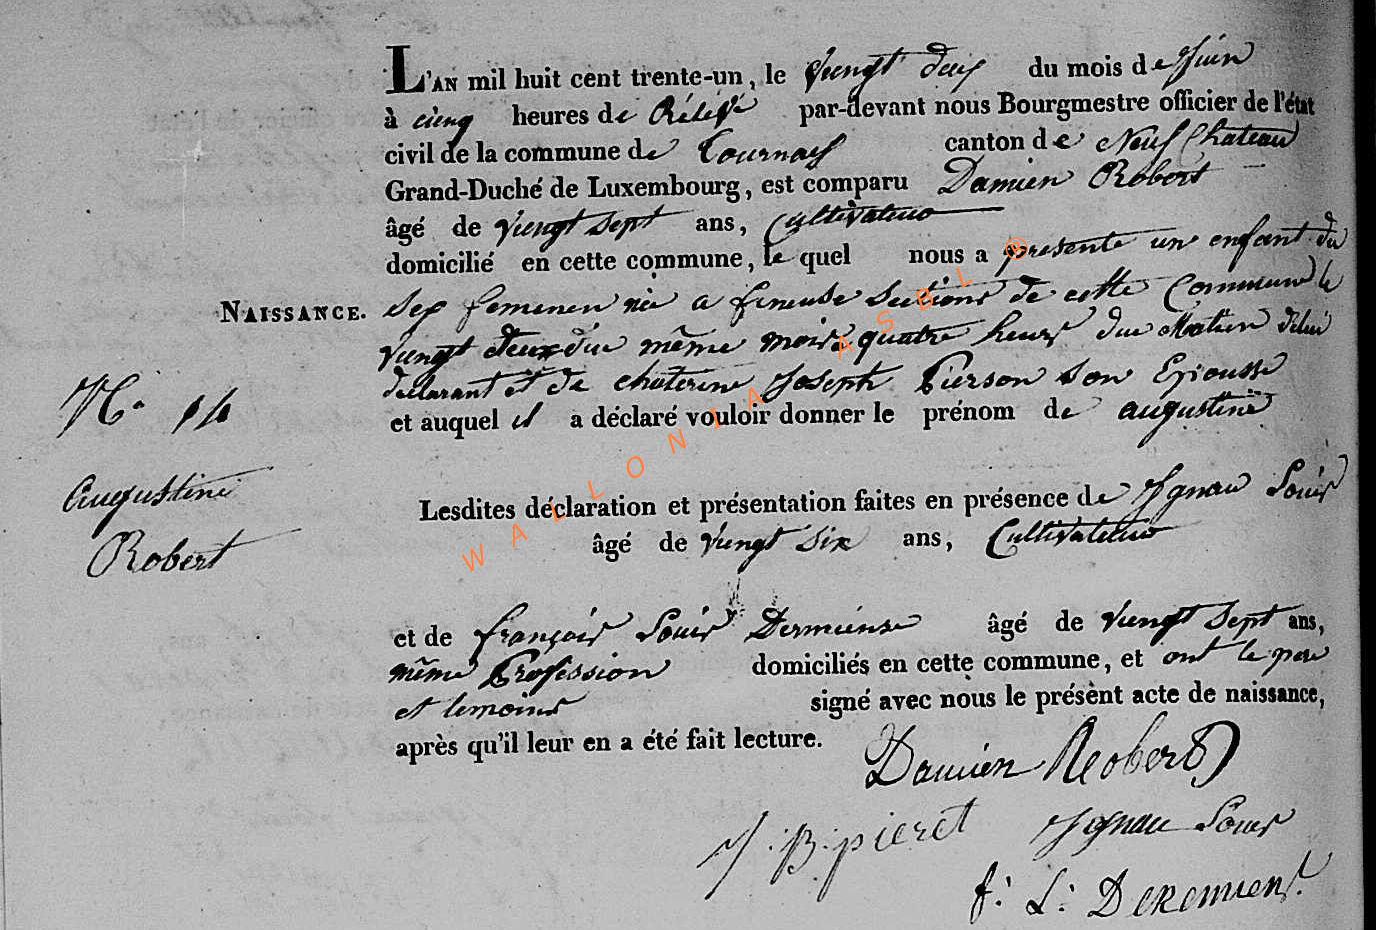 L'AN mil huit cent trente-un, le vingt deux du mois de Juin
à cinq heures de Rélévé par-devant nous Bourgmestre officier de l'état
civil de la commune de Tournay canton de Neufchateau
Grand-Duché de Luxembourg, est comparu Damien Robert
âgé de vingt sept ans, Cultivateur
domicilié en cette commune, le quel nous a présenté un enfant du
NAISSANCE. sex femenen née a fineuse sections de cette Commune le
vingt deux du même mois quatre heurs du Matien de lui
declarant et de chaterine Joseph Pierson son Epousse
N.º 14
et auquel il a déclaré vouloir donner le prénom de augustine
Augustine
Robert
Lesdites déclaration et présentation faites en présence de Ignau Louis
âgé de vingt six ans, Cultivateur
et de françois Louis Dermiense âgé de vingt sept ans,
même Profession domiciliés en cette commune, et ont le pere
et temoins signé avec nous le présent acte de naissance,
après qu'il leur en a été fait lecture.
Damien Robert
J. B. pieret Ignau Louis
f. L. Deremiens.
WALLONIA ASBL ®